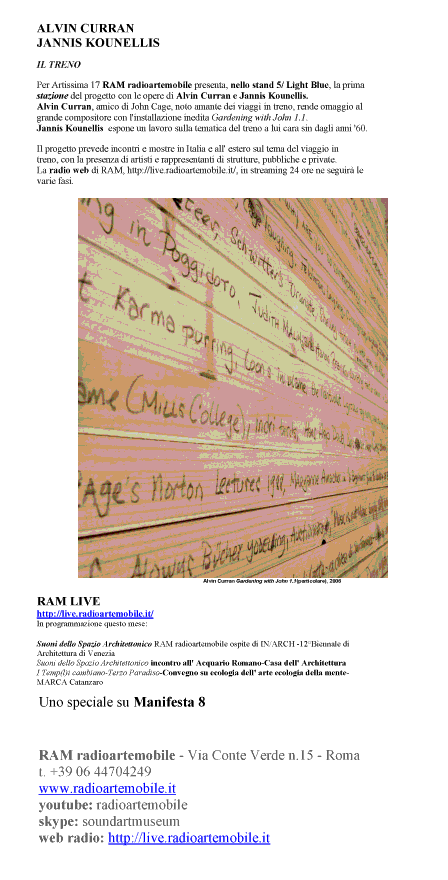 ALVIN CURRAN
JANNIS KOUNELLIS
IL TRENO
Per Artissima 17 RAM radioartemobile presenta, nello stand 5/ Light Blue, la prima
stazione del progetto con le opere di Alvin Curran e Jannis Kounellis.
Alvin Curran, amico di John Cage, noto amante dei viaggi in treno, rende omaggio al
grande compositore con l'installazione inedita Gardening with John 1.1.
Jannis Kounellis espone un lavoro sulla tematica del treno a lui cara sin dagli anni '60.
Il progetto prevede incontri e mostre in Italia e all' estero sul tema del viaggio in
treno, con la presenza di artisti e rappresentanti di strutture, pubbliche e private.
La radio web di RAM, http://live.radioartemobile.it/, in streaming 24 ore ne seguirà le
varie fasi.
ng in Poggidoro, Judith
t Karma purring,
ame (Mills College), 
Cage's Norton Lectures 1988,
Alvin Curran Gardening with John 1.1(particolare), 2006
RAM LIVE
http://live.radioartemobile.it/
In programmazione questo mese:
Suoni dello Spazio Architettonico RAM radioartemobile ospite di IN/ARCH -12°Biennale di
Architettura di Venezia
Suoni dello Spazio Architettonico incontro all' Acquario Romano-Casa dell' Architettura
I Temp(i) cambiano-Terzo Paradiso-Convegno su ecologia dell' arte ecologia della mente-
MARCA Catanzaro
Uno speciale su Manifesta 8
RAM radioartemobile - Via Conte Verde n.15 - Roma
t. +39 06 44704249
www.radioartemobile.it
youtube: radioartemobile
skype: soundartmuseum
web radio: http://live.radioartemobile.it